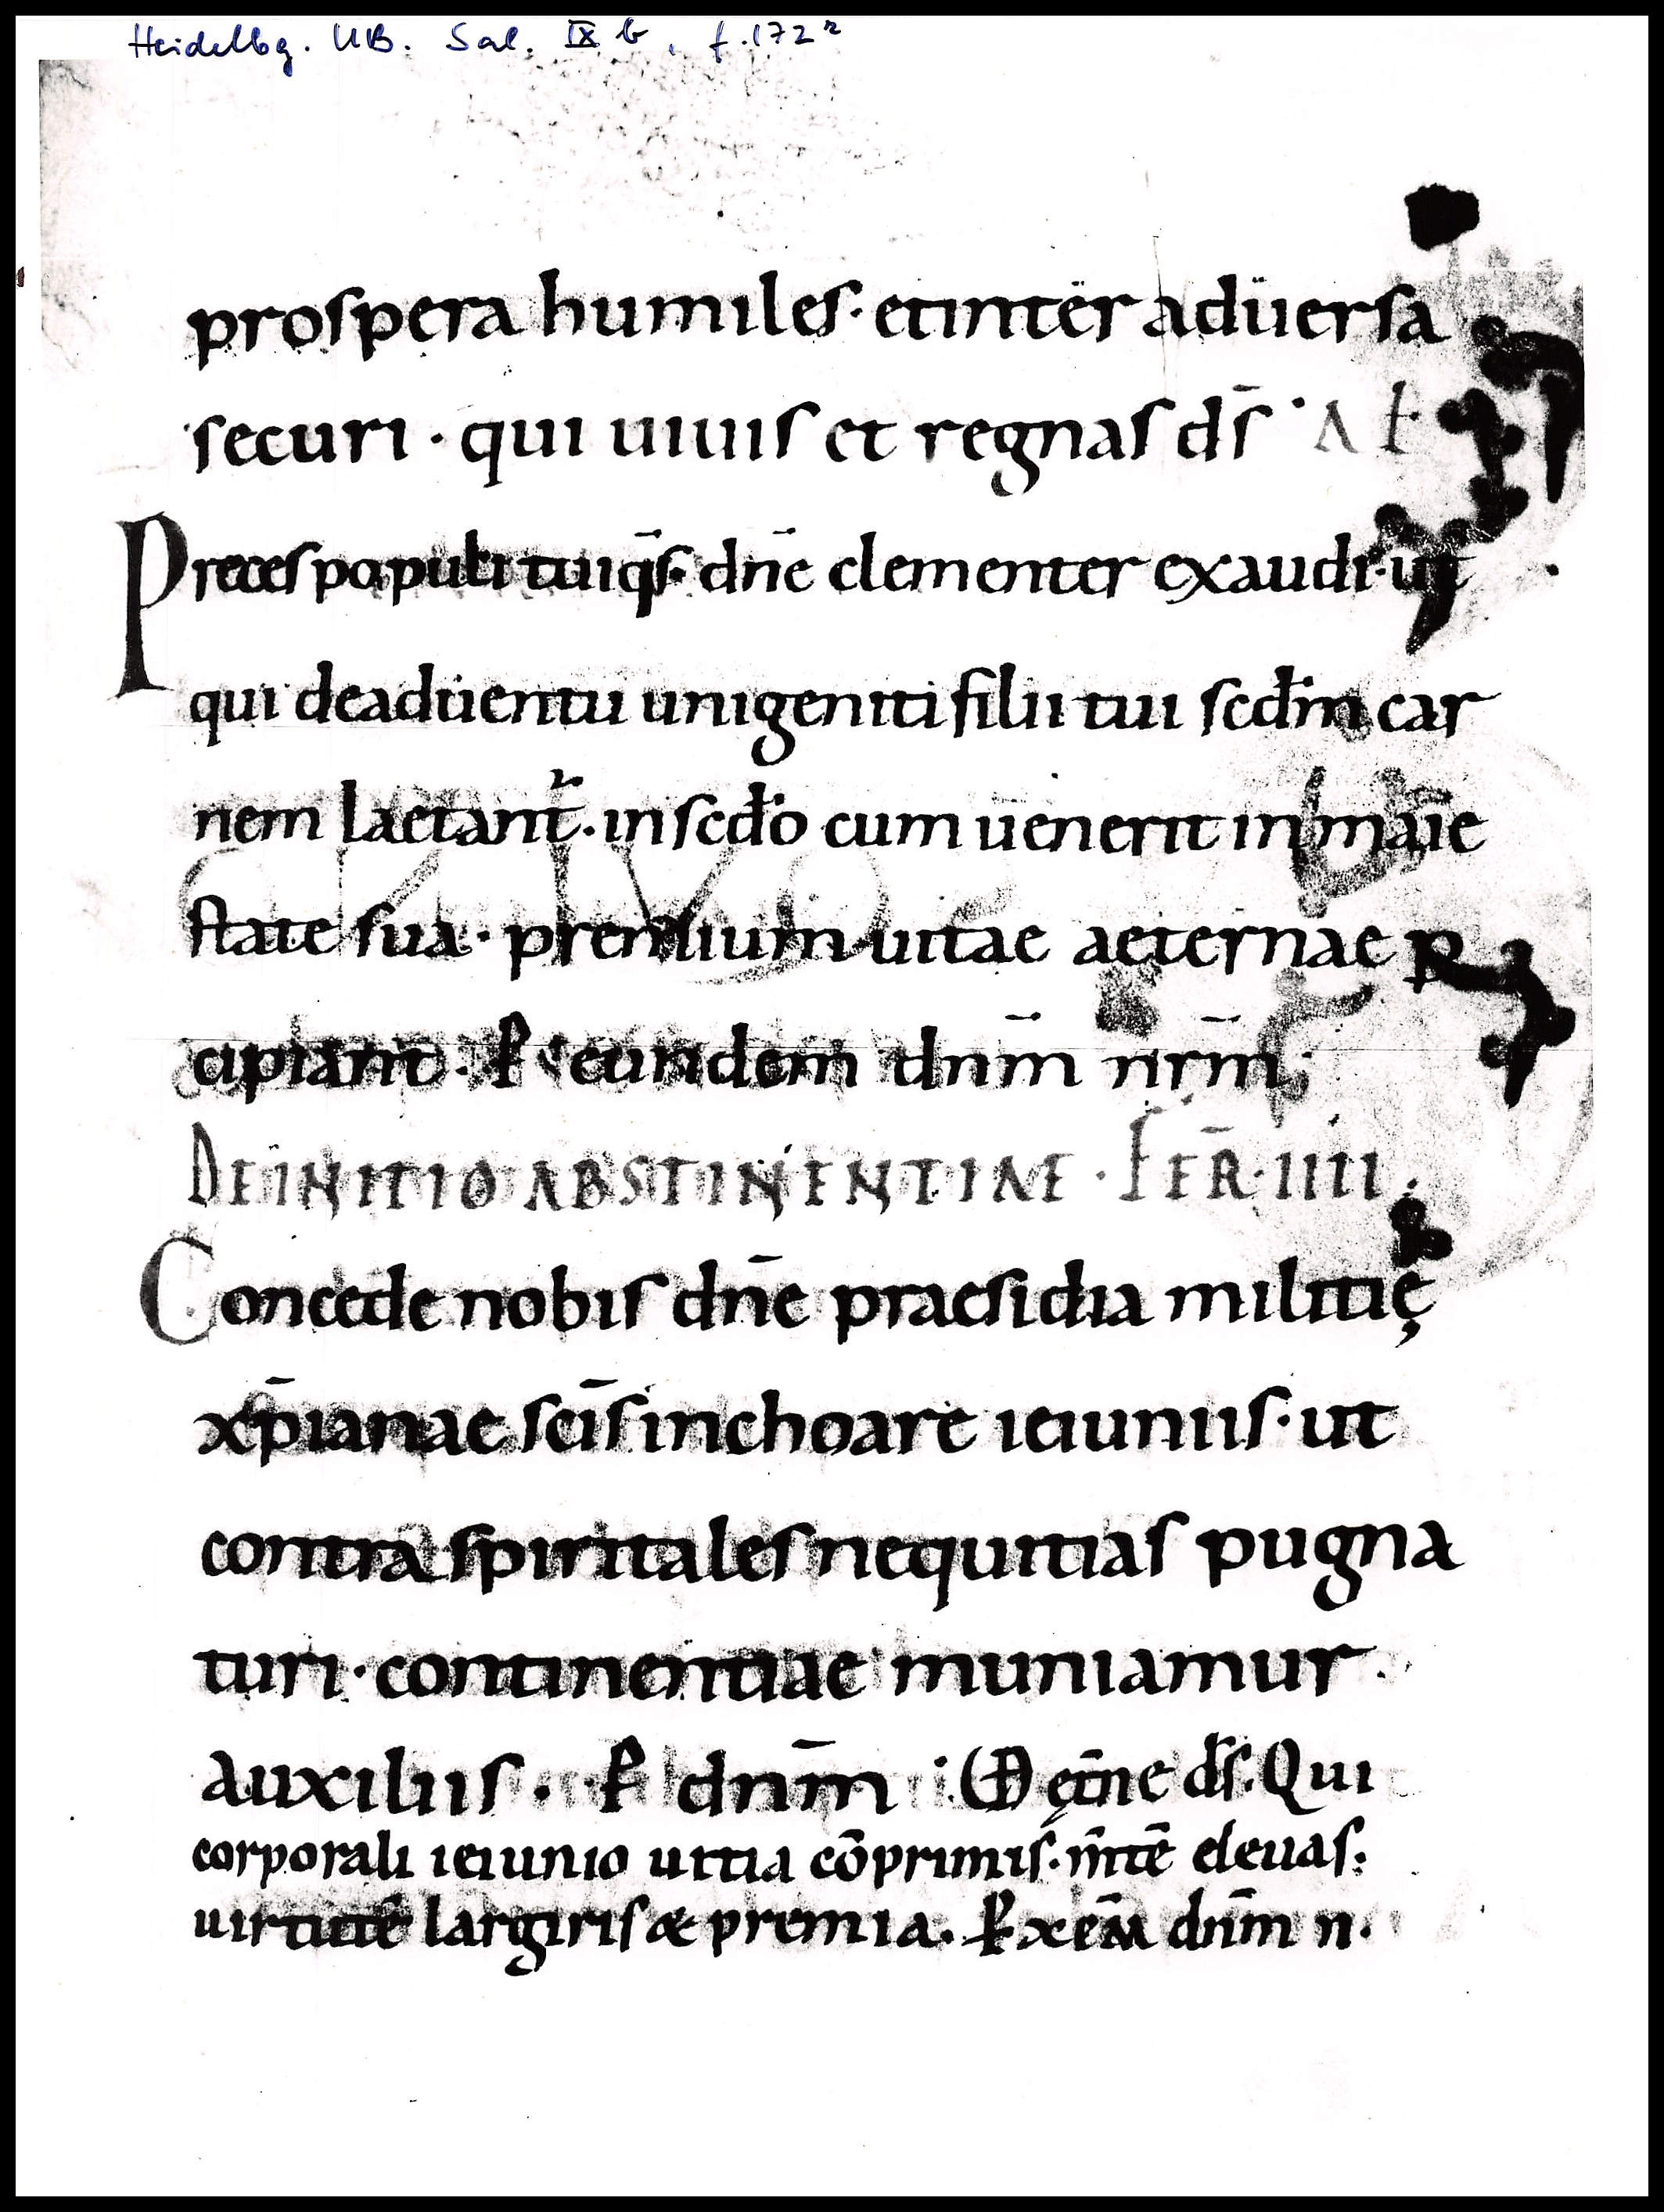 Heidelbg. UB. Sal. IX b, f. 172 r
prospera humiles· et inter aduersa
securi · qui uiuis et regnas ds̄ · AŁ
Preces populi tui qs̄· dnē clementer exaudi· ut
qui de aduentu unigeniti filii tui scđm car
nem laetant᷑· in scđo cum uenerit in maie
state sua· premium uitae aeternae p
cipiant · P̲ eundem dnm̄ nrm̄;
DE INITIO ABSTINENTIAE · FER̄· IIII·
Concede nobis dnē praesidia militię
xp̄ianae scīs inchoare ieiuniis· ut
contra spiritales nequitias pugna
turi· continentiae muniamur
auxiliis · P̲ dnm̄ · VD ętn̄e ds̄. Qui
corporali ieiunio uitia cōprimis· m̄tē eleuas:
uirtutē largiris & premia. P̲ xp̄m dnm̄ n·